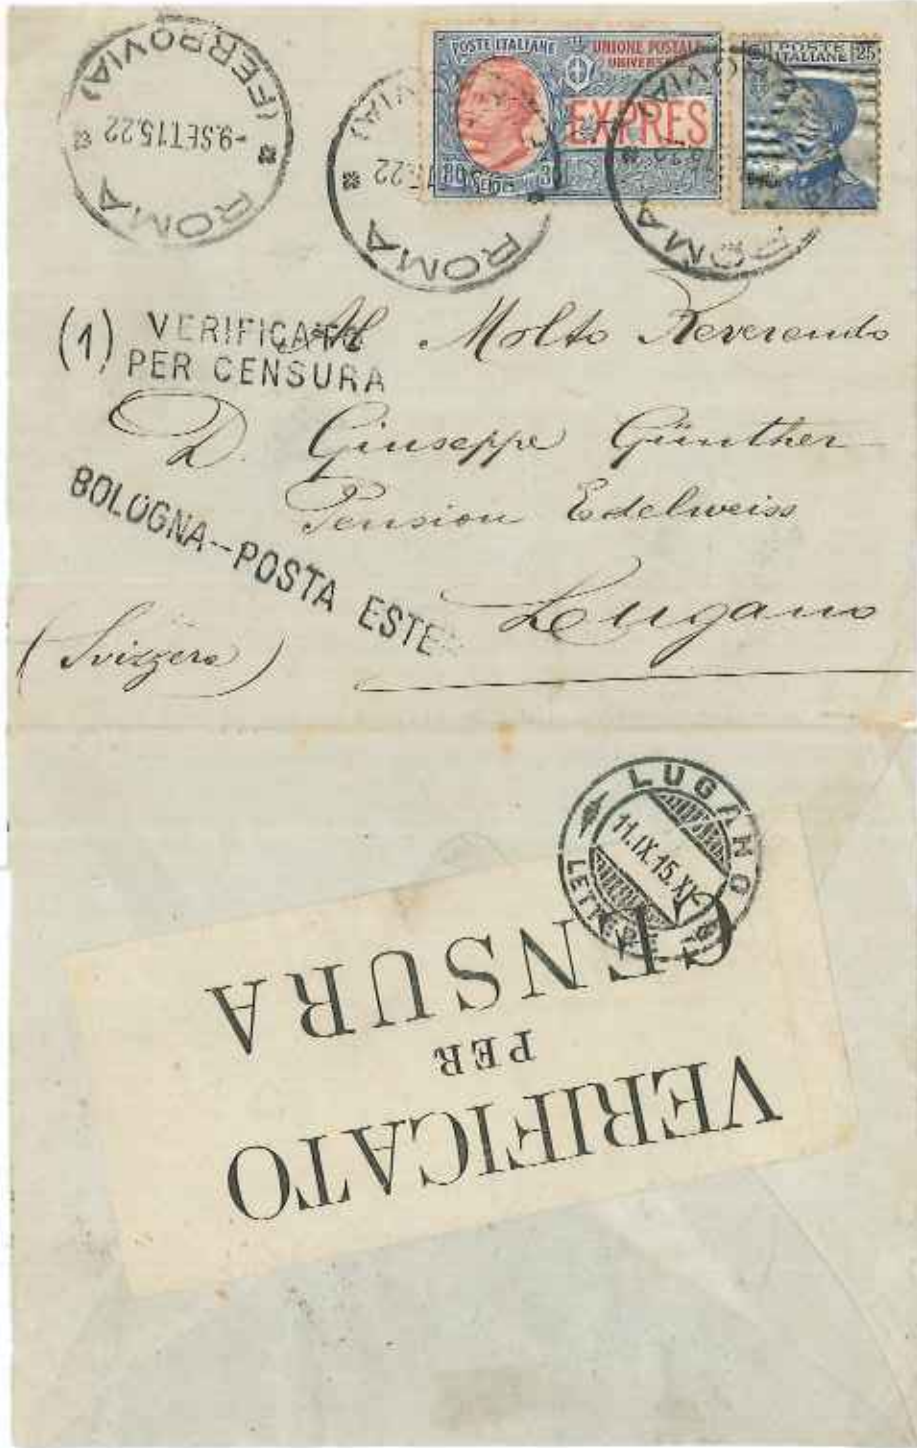 ROMA
(FERROVIA)
-9.SET.15.22
ROMA
ROMA
POSTE ITALIANE
UNIONE POSTALE
UNIVERSALE
EXPRES
30
POSTE
ITALIANE
25
(1) VERIFICATO
PER CENSURA
Al Molto Reverendo
D. Giuseppe Günther
Pension Edelweiss
BOLOGNA--POSTA ESTE
Lugano
(Svizzera)
LUGANO
11.IX.15.XI
VERIFICATO
PER
CENSURA